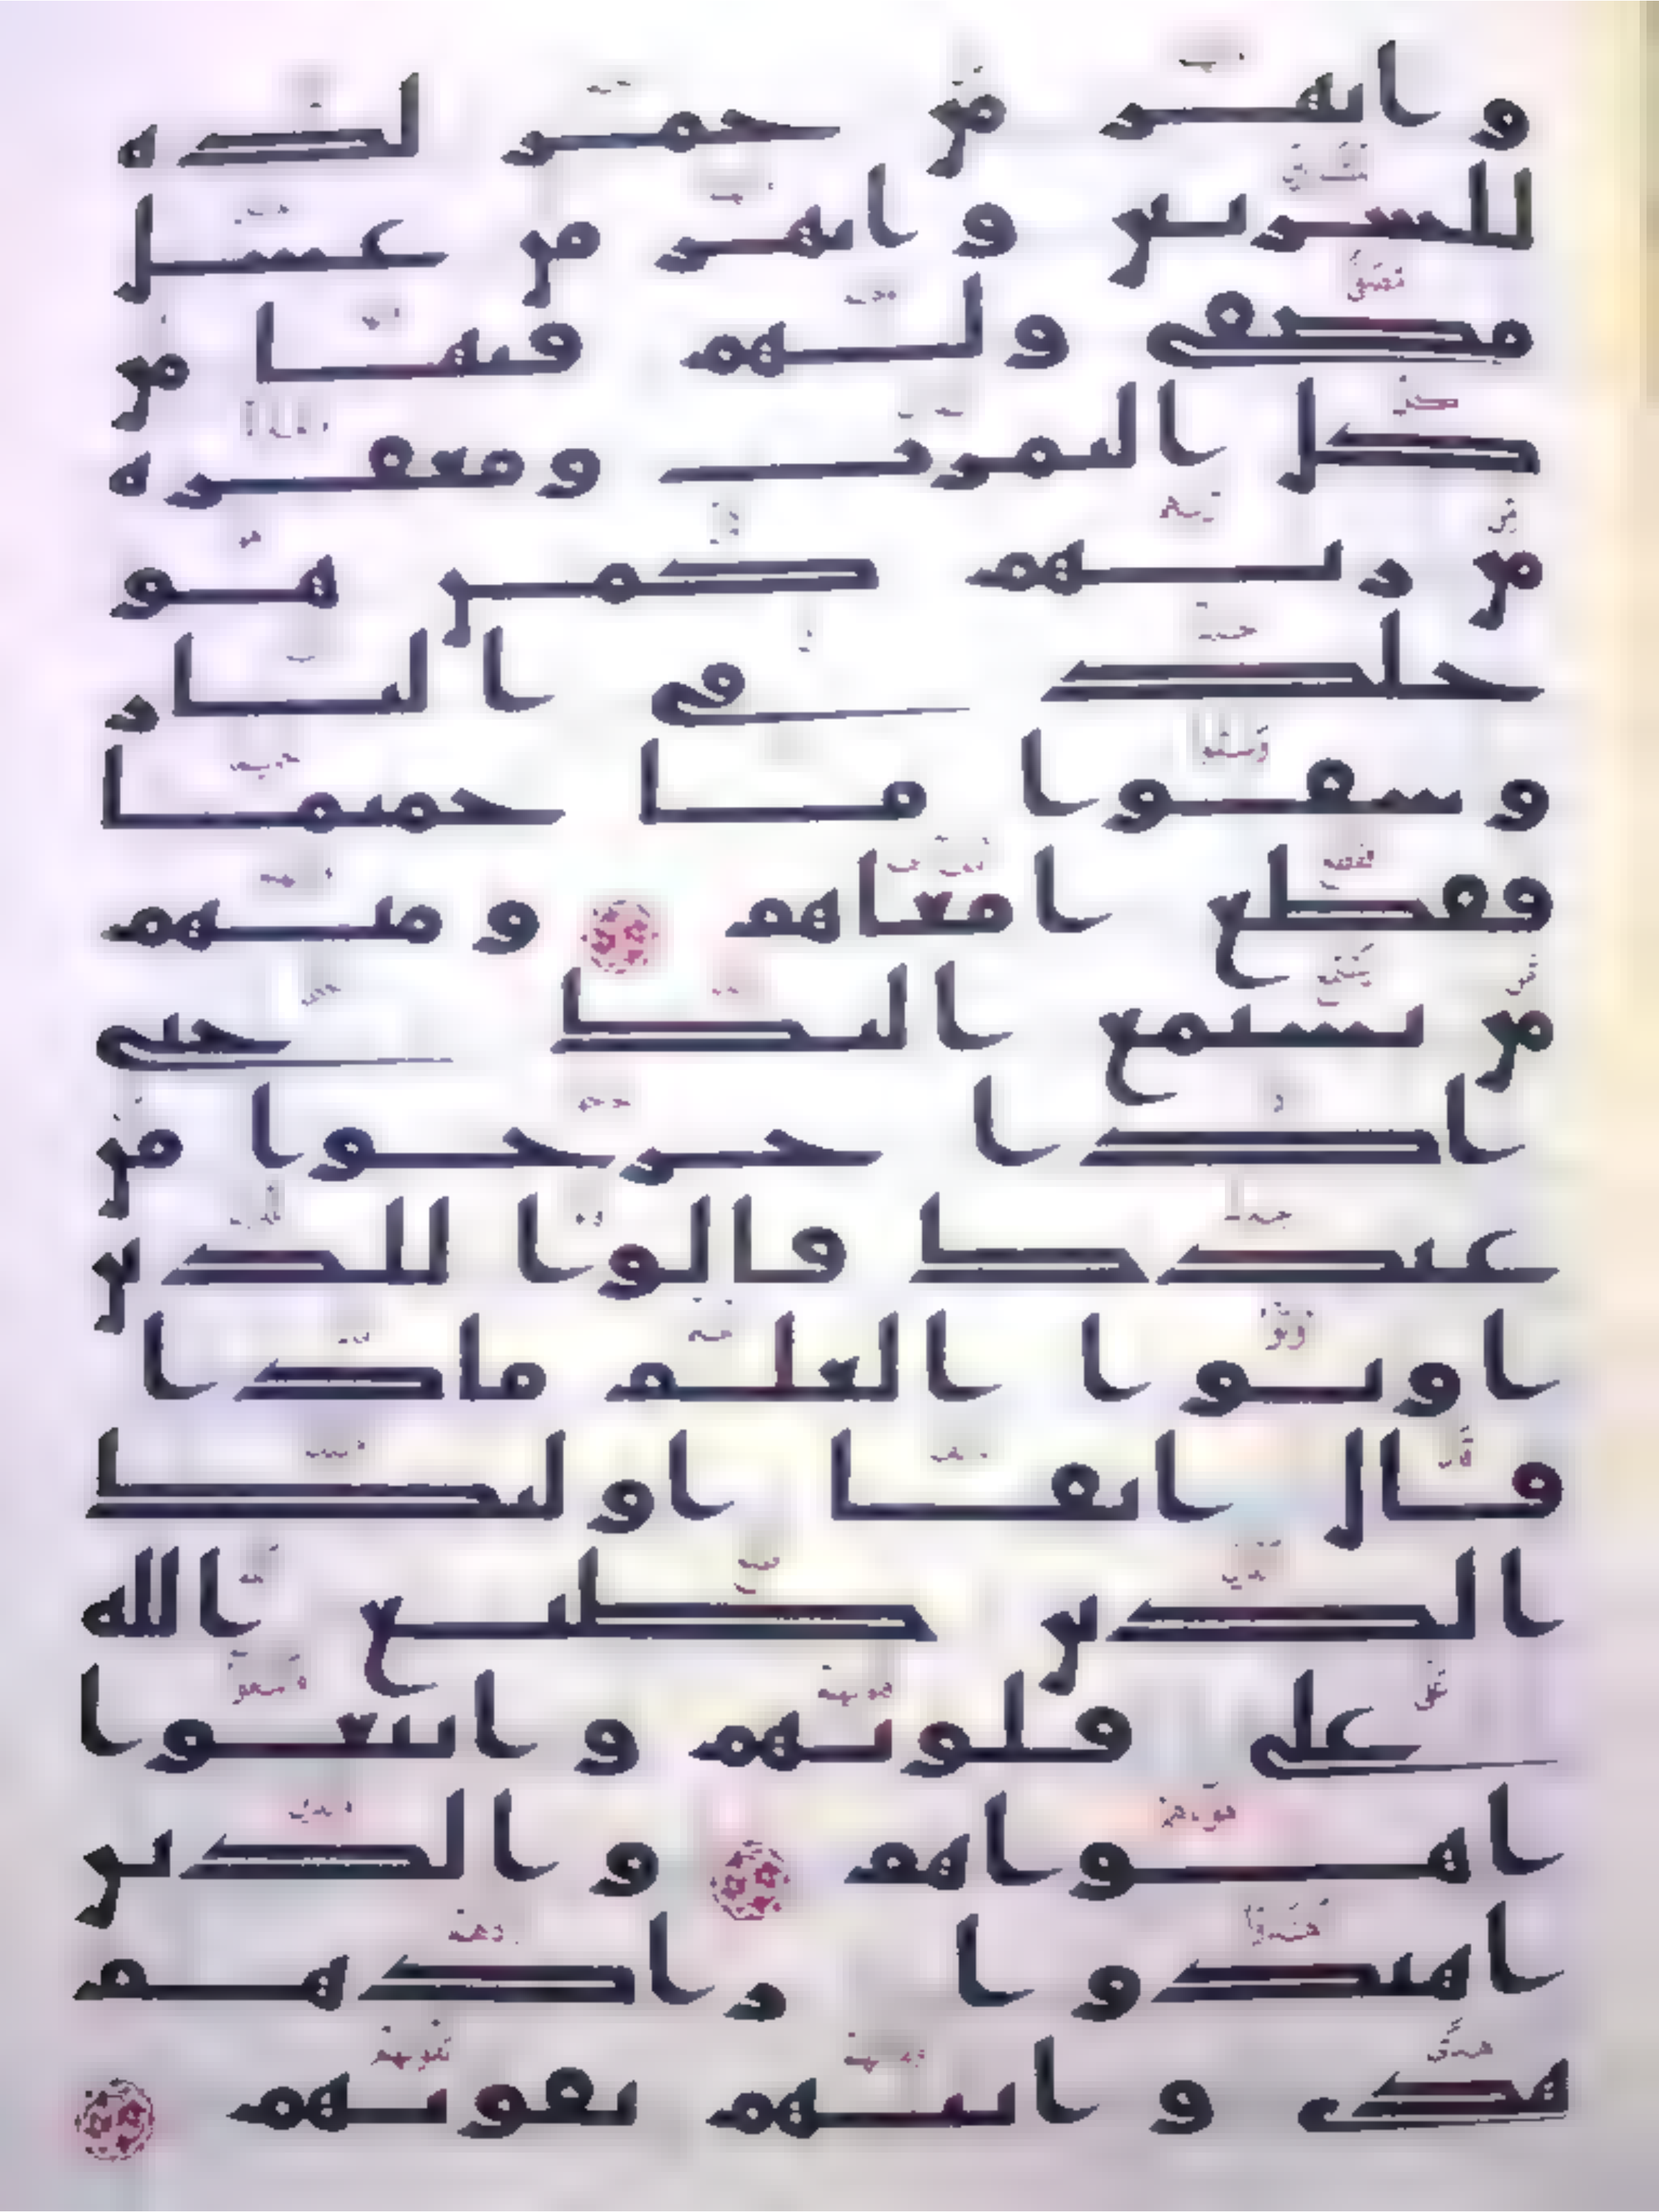 وانهر من خمر لذه
للشربين وانهر من عسل
مصفى ولهم فيها من
كل الثمرت ومغفره
من ربهم كمن هو
خلد في النار
وسقوا ما حميما
فقطع امعاهم ومنهم
من يستمع اليك حتى
اذا خرجوا من
عندك قالوا للذين
اوتوا العلم ماذا
قال انفا اوليك
الذين طبع الله
على قلوبهم واتبعوا
اهواهم والذين
اهتدوا زادهم
هدى واتيهم تقويهم